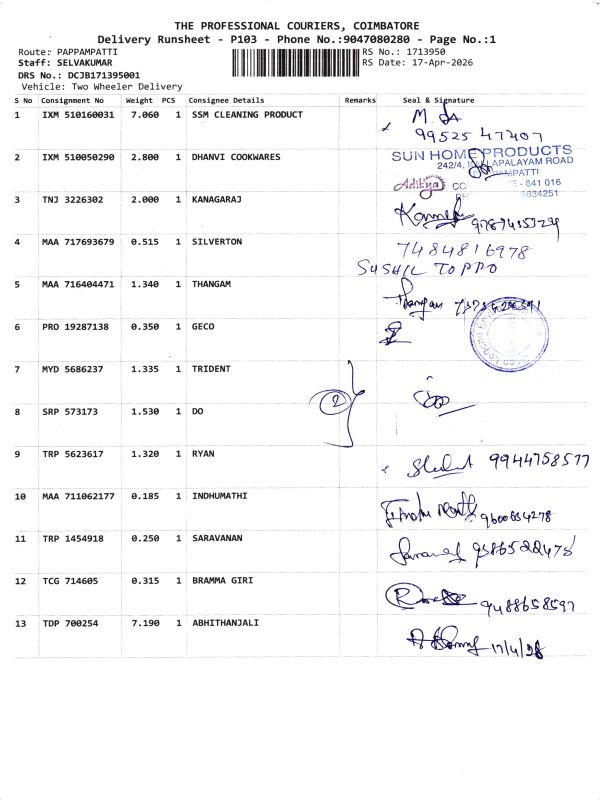 THE PROFESSIONAL COURIERS, COIMBATORE
Delivery Runsheet - P103 - Phone No.:9047080280 - Page No.:1
Route: PAPPAMPATTI RS No.: 1713950
Staff: SELVAKUMAR RS Date: 17-Apr-2026
DRS No.: DCJB171395001
Vehicle: Two Wheeler Delivery
S No Consignment No Weight PCS Consignee Details Remarks Seal & Signature
1 IXM 510160031 7.060 1 SSM CLEANING PRODUCT
99525 47407
2 IXM 510050290 2.800 1 DHANVI COOKWARES
SUN HOME PRODUCTS
242/4, APALAYAM ROAD
Aditya - 641 016
3 TNJ 3226302 2.000 1 KANAGARAJ
4 MAA 717693679 0.515 1 SILVERTON 7484816978
SUSHIL TOPPO
5 MAA 716404471 1.340 1 THANGAM Thangam
6 PRO 19287138 0.350 1 GECO
7 MYD 5686237 1.335 1 TRIDENT
2
8 SRP 573173 1.530 1 DO
9 TRP 5623617 1.320 1 RYAN 9944758577
10 MAA 711062177 0.185 1 INDHUMATHI 9600654278
11 TRP 1454918 0.250 1 SARAVANAN
12 TCG 714605 0.315 1 BRAMMA GIRI 9488658597
13 TDP 700254 7.190 1 ABHITHANJALI 17/4/26